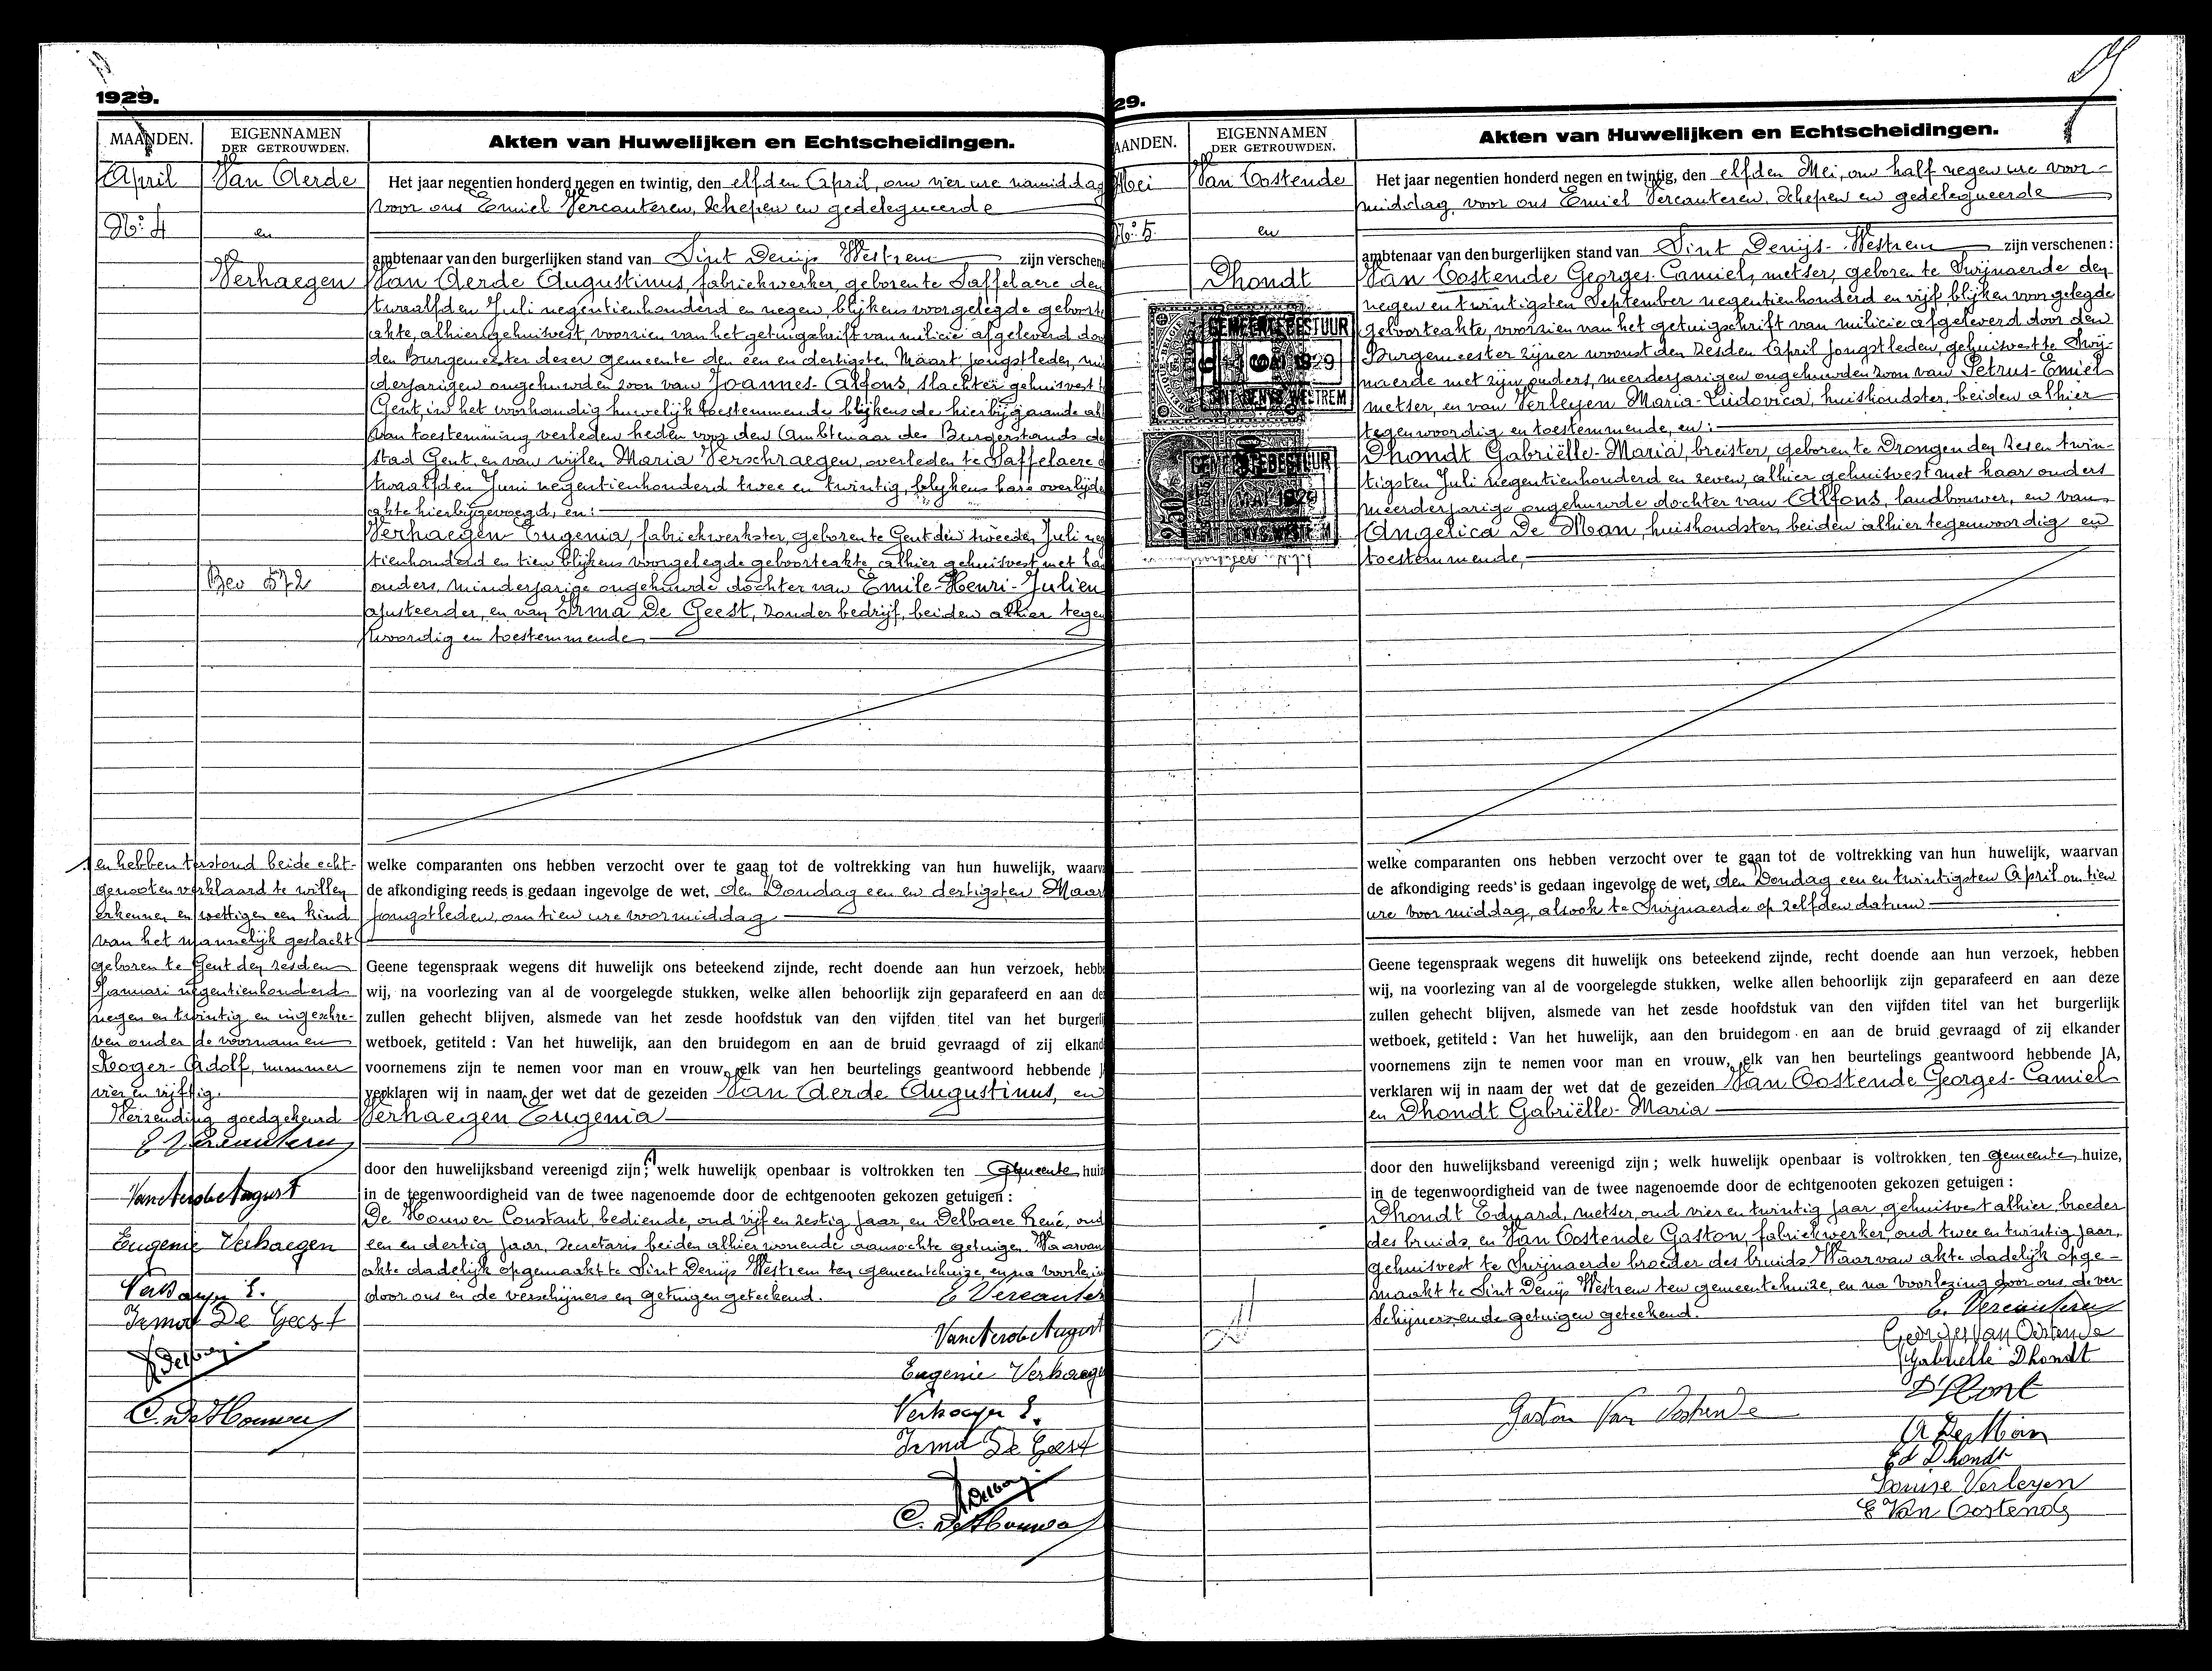 1929.
MAANDEN.
EIGENNAMEN
DER GETROUWDEN.
Akten van Huwelijken en Echtscheidingen.
April
Van Aerde
Nº 4
en
Verhaegen
Bev 572
Het jaar negentien honderd negen en twintig, den elfden April, om vier ure namiddag
voor ons Emiel Vercauteren, Schepen en gedelegueerde
ambtenaar van den burgerlijken stand van Sint Denijs Westrem zijn verschen
Van Aerde Augustinus, fabriekwerker, geboren te Saffelaere den
twaalfden Juli negentienhonderd en negen, blijkens voorgelegde geboorte
akte, alhier gehuisvest, voorzien van het getuigschrift van milicie afgeleverd doo
den Burgemeester dezer gemeente den een en dertigsten Maart jongstleden, min
derjarigen ongehuwden zoon van Joannes-Alfons, slachter gehuisvest t
Gent, in het voorhandig huwelijk toestemmende, blijkens de hierbijgaande ak
van toestemming verleden heden voor den Ambtenaar des Burgerstands de
stad Gent, en van wijlen Maria Verschraegen, overleden te Saffelaere d
twaalfden Juni negentienhonderd twee en twintig, blijkens hare overlijde
akte hierbijgevoegd, en:
Verhaegen Eugenia, fabriekwerkster, geboren te Gent den tweeden Juli neg
tienhonderd en tien blijkens voorgelegde geboorteakte, alhier gehuisvest met ha
ouders, minderjarige ongehuwde dochter van Emile-Henri-Julien
ajusteerder, en van Irma De Geest, zonder bedrijf, beiden alhier tegen
woordig en toestemmende
welke comparanten ons hebben verzocht over te gaan tot de voltrekking van hun huwelijk, waarv
de afkondiging reeds is gedaan ingevolge de wet, den Zondag een en dertigsten Maar
jongstleden, om tien ure voormiddag
Geene tegenspraak wegens dit huwelijk ons beteekend zijnde, recht doende aan hun verzoek, hebb
wij, na voorlezing van al de voorgelegde stukken, welke allen behoorlijk zijn geparafeerd en aan de
zullen gehecht blijven, alsmede van het zesde hoofdstuk van den vijfden titel van het burgerli
wetboek, getiteld : Van het huwelijk, aan den bruidegom en aan de bruid gevraagd of zij elkand
voornemens zijn te nemen voor man en vrouw, elk van hen beurtelings geantwoord hebbende J
verklaren wij in naam der wet dat de gezeiden Van Aerde Augustinus, en
Verhaegen Eugenia
door den huwelijksband vereenigd zijn; welk huwelijk openbaar is voltrokken ten Gemeente huiz
in de tegenwoordigheid van de twee nagenoemde door de echtgenooten gekozen getuigen :
De Houwer Constant, bediende, oud vijf en zestig jaar, en Delbaere René, oud
een en dertig jaar, secretaris beiden alhier wonende aansochte getuigen. Waarvan
akte dadelijk opgemaakt te Sint Denijs Westrem ten gemeentehuize, en na voorlezin
door ons en de verschijners en getuigen geteekend.
E Vercauter
Van Aerde August
Eugenie Verhaege
Verhaegen E.
Irma De Geest
C. De Houwer
en hebben terstond beide echt-
genooten verklaard te willen
erkennen en wettigen een kind
van het mannelijk geslacht
geboren te Gent den zesden
Januari negentienhonderd
negen en twintig en ingeschre-
ven onder de voornamen
Roger-Adolf, nummer
vier en vijftig.
Verzending goedgekeurd
E Vercauteren
Van Aerde August
Eugenie Verhaegen
Verhaegen E.
Irma De Geest
C. De Houwer
29.
AANDEN.
EIGENNAMEN
DER GETROUWDEN.
Akten van Huwelijken en Echtscheidingen.
Mei
Van Oostende
Nº 5.
en
Dhondt
GEMEENTEBESTUUR
1929
SINT DENYS WESTREM
GEMEENTEBESTUUR
MAI 1929
250
Het jaar negentien honderd negen en twintig, den elfden Mei, om half negen ure voor-
middag, voor ons Emiel Vercauteren, Schepen en gedelegueerde
ambtenaar van den burgerlijken stand van Sint Denijs-Westrem zijn verschenen:
Van Oostende Georges-Camiel, metser, geboren te Swijnaerde den
negen en twintigsten September negentienhonderd en vijf blijken voorgelegde
geboorteakte, voorzien van het getuigschrift van milicie afgeleverd door den
Burgemeester zijner woonst den zesden April jongstleden, gehuisvest te Swij-
naerde met zijn ouders, meerderjarigen ongehuwden zoon van Petrus-Emiel
metser, en van Verleyen Maria-Ludovica, huishoudster, beiden alhier
tegenwoordig en toestemmende, en:
Dhondt Gabriëlle-Maria, breister, geboren te Drongen den zes en twin-
tigsten Juli negentienhonderd en zeven, alhier gehuisvest met haar ouders
meerderjarige ongehuwde dochter van Alfons, landbouwer, en van
Angelica De Man, huishoudster, beiden alhier tegenwoordig en
toestemmende,
welke comparanten ons hebben verzocht over te gaan tot de voltrekking van hun huwelijk, waarvan
de afkondiging reeds is gedaan ingevolge de wet, den Zondag een en twintigsten April om tien
ure voormiddag, alsook te Swijnaerde op zelfden datum
Geene tegenspraak wegens dit huwelijk ons beteekend zijnde, recht doende aan hun verzoek, hebben
wij, na voorlezing van al de voorgelegde stukken, welke allen behoorlijk zijn geparafeerd en aan deze
zullen gehecht blijven, alsmede van het zesde hoofdstuk van den vijfden titel van het burgerlijk
wetboek, getiteld : Van het huwelijk, aan den bruidegom en aan de bruid gevraagd of zij elkander
voornemens zijn te nemen voor man en vrouw, elk van hen beurtelings geantwoord hebbende JA,
verklaren wij in naam der wet dat de gezeiden Van Oostende Georges-Camiel
en Dhondt Gabriëlle-Maria
door den huwelijksband vereenigd zijn; welk huwelijk openbaar is voltrokken, ten gemeente huize,
in de tegenwoordigheid van de twee nagenoemde door de echtgenooten gekozen getuigen :
Dhondt Eduard, metser, oud vier en twintig jaar gehuisvest alhier, broeder
des bruids, en Van Oostende Gaston, fabriekwerker, oud twee en twintig jaar,
gehuisvest te Swijnaerde broeder des bruids. Waarvan akte dadelijk opge-
maakt te Sint Denijs Westrem ten gemeentehuize, en na voorlezing door ons de ver-
schijners en de getuigen geteekend.
E. Vercauteren
Georges Van Oostende
Gabrielle Dhondt
D'Hont
Gaston Van Oostende
A De Man
Ed Dhondt
Louise Verleyen
E Van Oostende